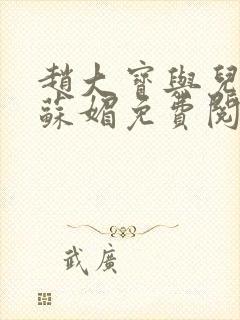 趙大寶與兒
蘇媚免費閱
武廣